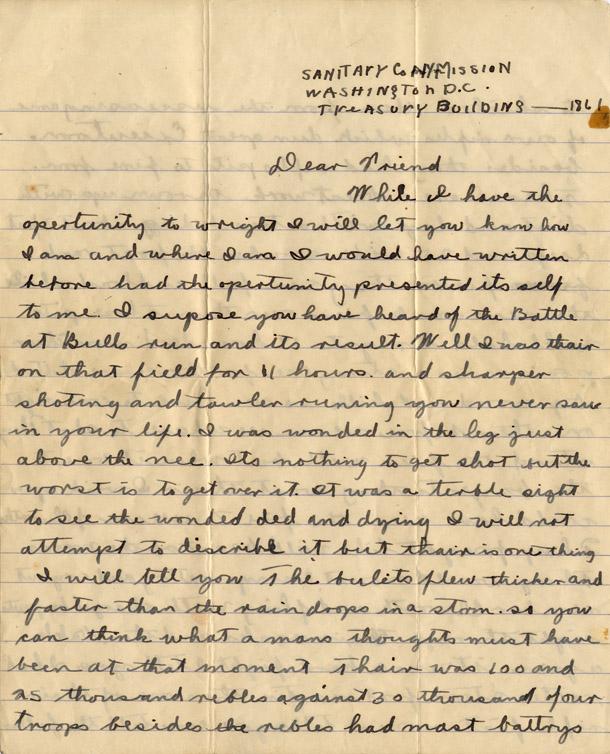 SANITARY COMMISSION
WASHINGTON D.C.
TREASURY BUILDING — 1861
Dear Friend
While I have the
opertunity to wright I will let you know how
I am and where I am I would have written
before had the opertunity presented its self
to me. I supose you have heard of the Battle
at Bulls run and its result. Well I was thair
on that field for 11 hours. and sharper
shoting and towler runing you never saw
in your life. I was wonded in the leg just
above the nee. Its nothing to get shot but the
worst is to get over it. It was a terble sight
to see the wonded ded and dying I will not
attempt to describe it but thair is one thing
I will tell you The bulits flew thicker and
faster than the rain drops in a storm. so you
can think what a mans thoughts must have
been at that moment Thair was 100 and
25 thousand rebles against 30 thousand of our
troops besides the rebles had mast battrys